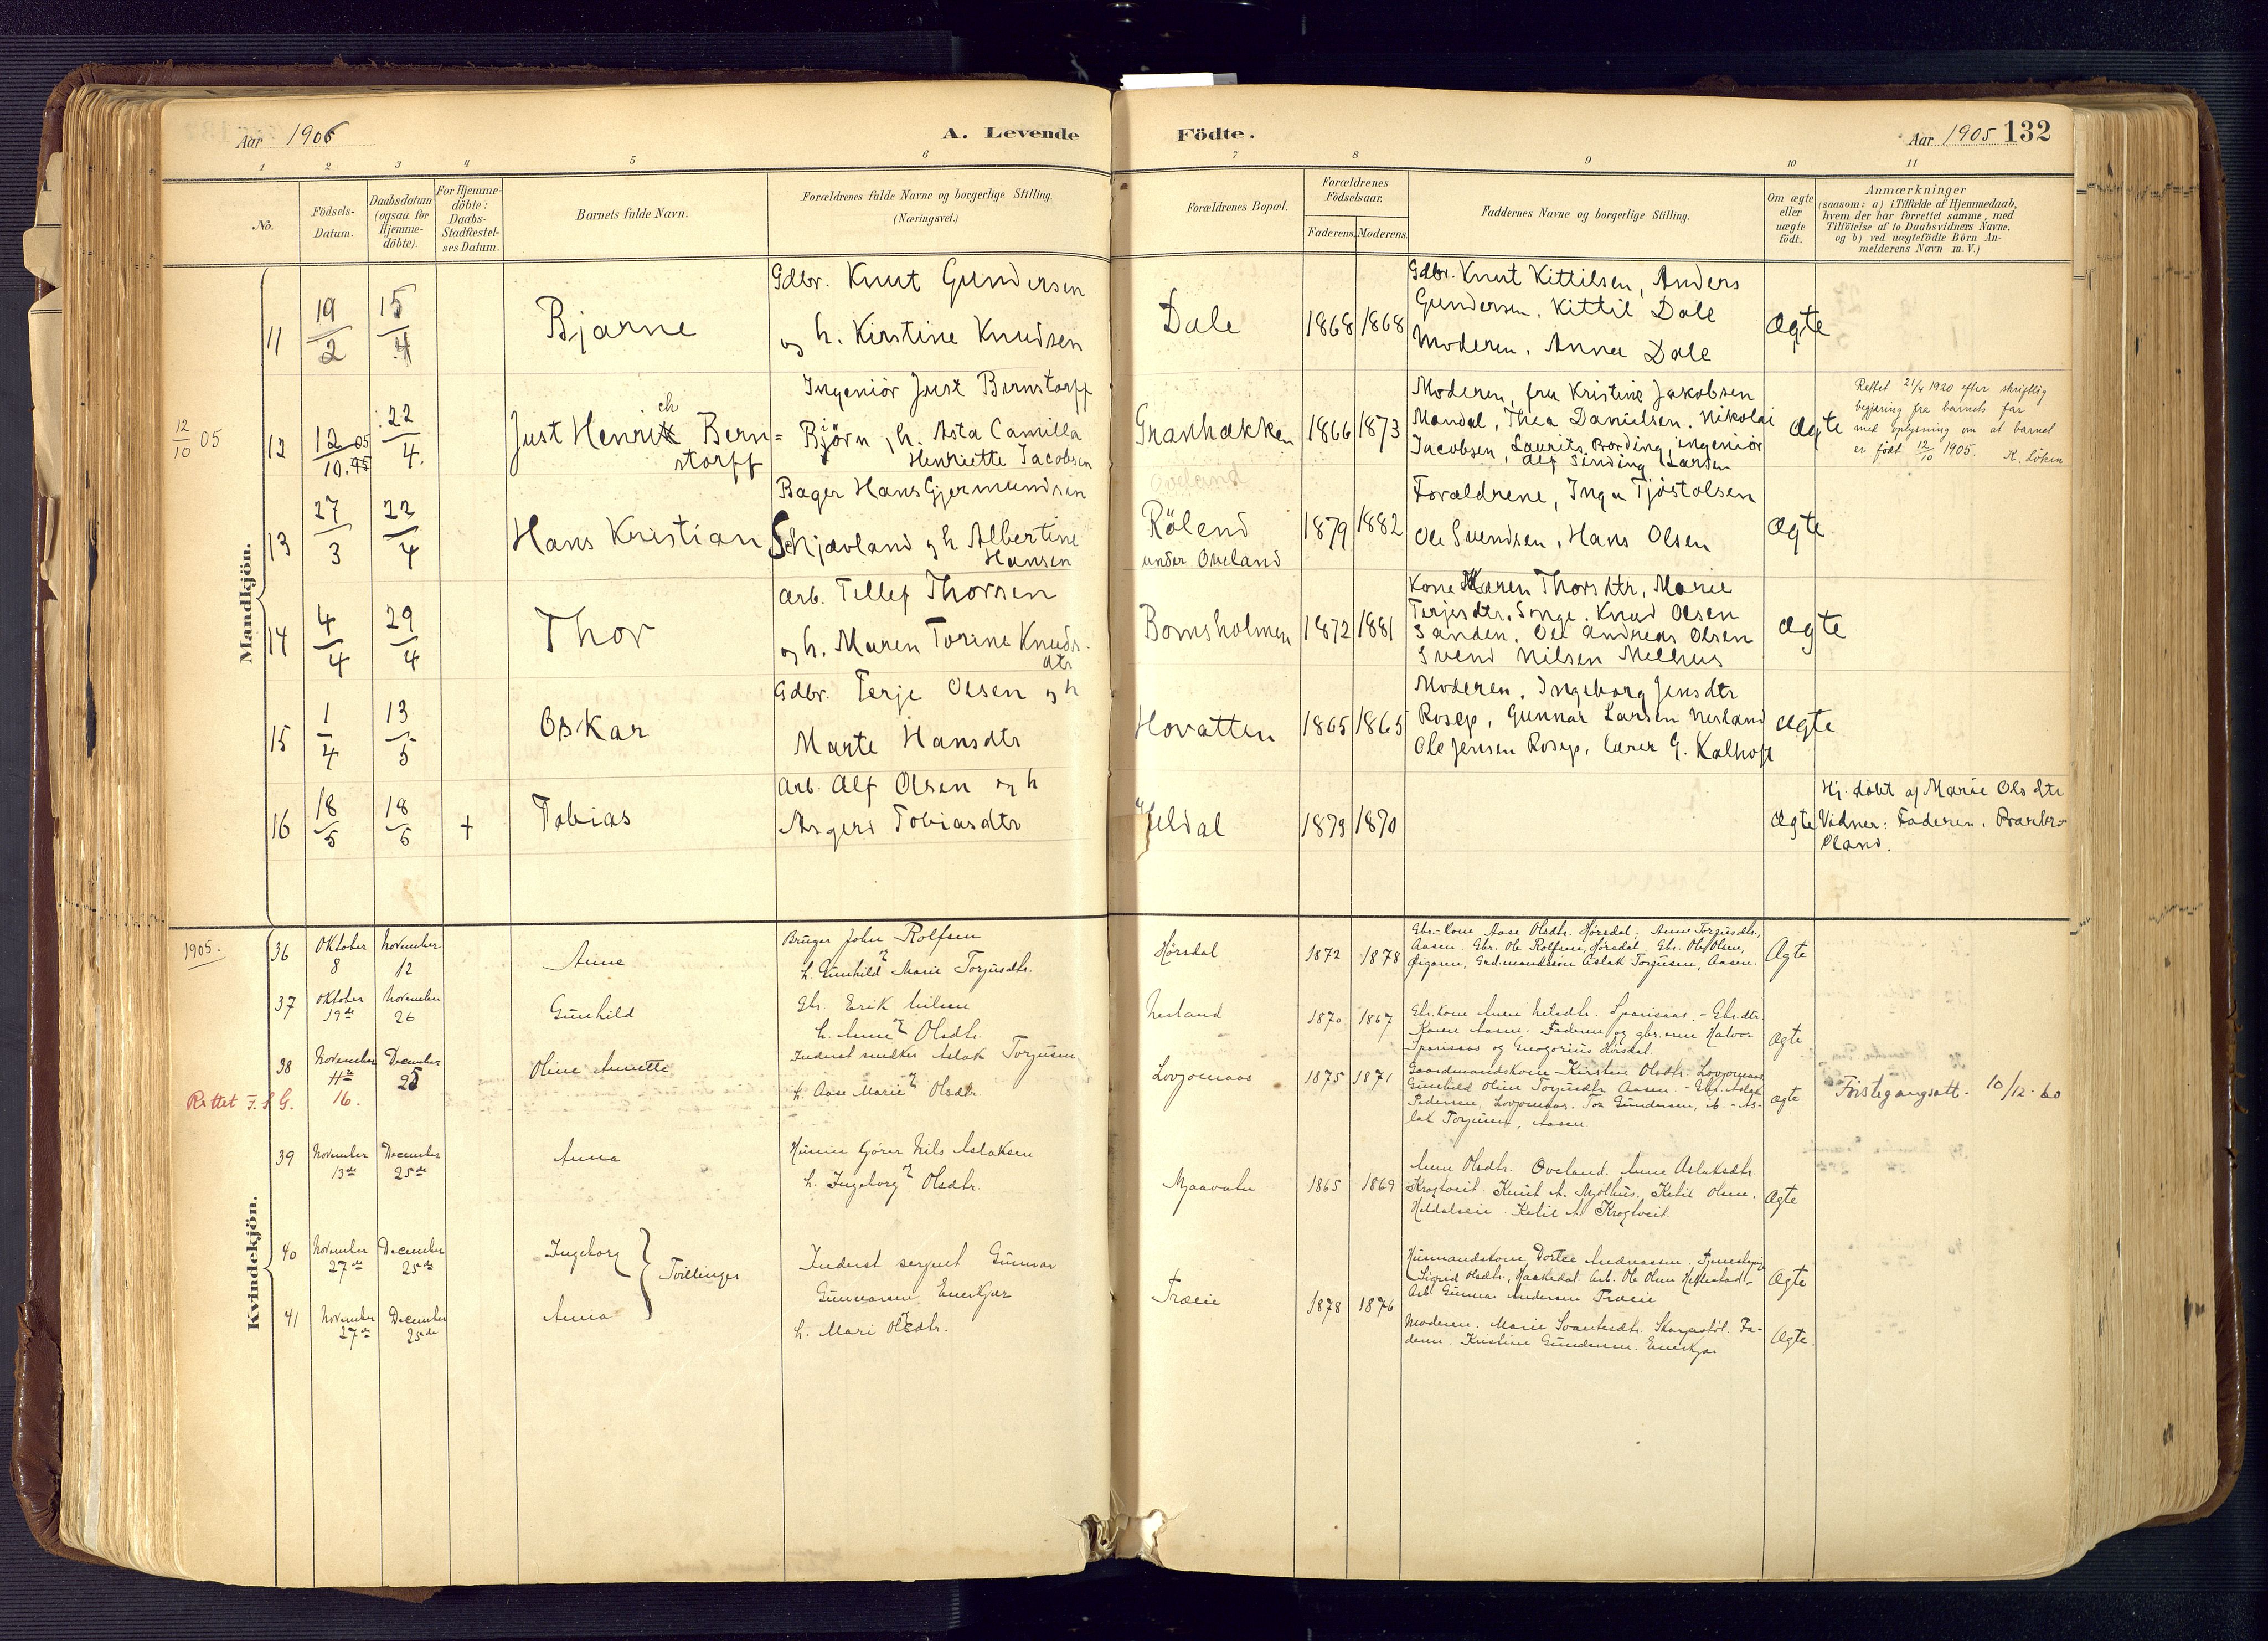 Aar 1906
A. Levende
Födte.
Aar 1905 132
1 2 3 4 5 6 7 8 9 10 11
No.
Födsels-
Datum.
Daabsdatum
(ogsaa for
Hjemme-
döbte).
For Hjemme-
döbte:
Daabs-
Stadfæstel-
ses Datum.
Barnets fulde Navn.
Forældrenes fulde Navne og borgerlige Stilling.
(Næringsvei.)
Forældrenes Bopæl.
Forældrenes
Födselsaar.
Faderens. Moderens.
Faddernes Navne og borgerlige Stilling.
Om ægte
eller
uægte
födt.
Anmærkninger
(saasom: a) i Tilfælde af Hjemmedaab,
hvem der har forrettet samme, med
Tilföielse af to Daabsvidners Navne,
og b) ved uægtefödte Börn An-
melderens Navn m. V.)
Mandkjön.
11 19/2 15/4 Bjarne
Gdbr. Knut Gundersen
og h. Kirstine Knudsen
Dale 1868 1868
Gdbr. Knut Kittilsen, Anders
Gundersen, Kittil Dale
Moderen, Anna Dale
Ægte
12/10 05
12 12/10 05 22/4. Just Henrich Bern=
storff
Ingeniör Just Bernstorff
Bjørn, h. Asta Camilla
Henriette Jacobsen
Granhækken 1866 1873
Moderen, fru Kristine Jakobsen
Mandal, Thea Danielsen. Nikolai
Jacobsen, Laurits Bording, ingeniör
Alf Sinding Larsen
Ægte
Rettet 21/4 1920 efter skriftlig
begjæring fra barnets far
med oplysning om at barnet
er født 12/10 1905. K. Löken
13 27/3 22/4 Hans Kristian
Bager Hans Gjermundsen
Skjævland og h Albertine
Hansen
Oveland
Röland
under Oveland
1879 1882
Forældrene, Inga Tjöstolsen
Ole Svendsen, Hans Olsen
Ægte
14 4/4 29/4 Thor
Arb. Tellef Thorsen
og h. Maren Torine Knuds-
dtr
Bomsholmen 1872 1881
Kone Karen Thorsdtr, Marie
Terjesdtr. Songe. Knud Olsen
Sanden, Ole Andreas Olsen
Svend Nilsen Melhus
Ægte
15 1/4 13/5 Oskar
Gdbr. Terje Olsen og h
Marte Hansdtr
Hovatten 1865 1865
Moderen, Ingeborg Jensdtr
Rosep, Gunnar Larsen Nesland
Ole Jensen Rosep, lærer G. Kalhoft
Ægte
16 18/5 18/5 + Tobias
Arb. Alf Olsen og h
Asgerd Tobiasdtr
Heldal 1879 1870
Ægte
Hj. döbt af Marie Olsdtr
Vidner: Faderen,
Øland.
1905.
Kvindekjön.
36 Oktober November
8 12
Anne
Bruger John Rolfsen
og
h. Gunhild Marie Torjusdtr.
Hørsdal 1872 1878
Gbr.-kone Aase Olsdtr. Hörsdal; Anne Torjusdtr,
Aasen. Gbr. Ole Rolfsen, Hørsdal, Gbr. Ole Olsen,
Øigaren, Grd.mandssøn Aslak Torjusen, Aasen.
Ægte
37 Oktober November
19de 26
Gunhild
Gbr. Erik Nilsen
og
h. Anne Olsdtr.
Nesland 1870 1867
Gbr.kone Anne Nelsdtr. Sparsaas. - Gbr.dtr.
Karen Aasen. Faderen og gbr.erne Halvor
Sparsaas og Gregorius Hörsdal.
Ægte
38 November December
11te 25
16.
Rettet F. S G.
Oline Annette
Inderst smeker Aslak Torjusen
og
h. Aase Marie Olsdtr.
Lovjomaas 1875 1871
Gaardmandskone Kirsten Olsdtr. Lovjomaas,
Gunhild Oline Torjusdtr Aasen. - Gbr. Aslak
Pedersen, Lovjomaas. Tor Gundersen, ib. - As-
lak Torjusen, Aasen.
ægte
Förstegangsatt. 10/12-60
39 November December
13de 25de
Anna
Nils Aslaksen
og
h. Ingeborg Olsdtr.
Mjaavatn 1865 1869
Anne Olsdtr. Oveland. Anne Aslaksdtr.
Krogtveit. Knut A. Mjölhus. Ketil Olsen,
Heldalseie. Ketil A. Krogtveit.
Ægte
40 November December
27de 25de
Ingeborg
Tvillinger
Inderst sergent Gunnar
Gunnarsen Enerkjær
og
h. Mari Olsdtr.
Træeie 1878 1876
Husmandskone Dortee Andreassen. Tjenestepig
Sigrid Olsdtr., Haakedal. Arb. Ole Olsen Heftestad -
Arb Gunnar Andersen Træeie
Ægte
41 November December
27de 25de
Anna
Moderen. Marie Svartesdtr. Skarpestöl. Fa-
deren. Kristine Gundersen. Enerkjær
Ægte.